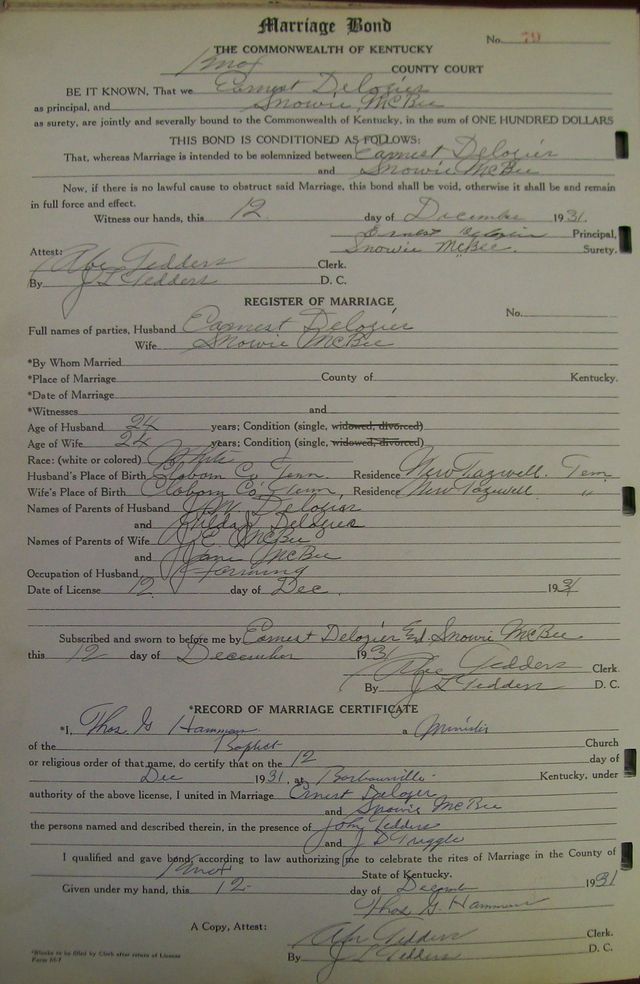 Marriage Bond
No. 79
THE COMMONWEALTH OF KENTUCKY
Knox COUNTY COURT
BE IT KNOWN, That we Earnest Delozier
as principal, and Snowie McBee
as surety, are jointly and severally bound to the Commonwealth of Kentucky, in the sum of ONE HUNDRED DOLLARS
THIS BOND IS CONDITIONED AS FOLLOWS:
That, whereas Marriage is intended to be solemnized between Earnest Delozier
and Snowie McBee
Now, if there is no lawful cause to obstruct said Marriage, this bond shall be void, otherwise it shall be and remain
in full force and effect.
Witness our hands, this 12 day of December 1931.
Ernest Delozier Principal,
Snowie McBee. Surety.
Attest:
Abe Tedders Clerk.
By J L Tedders D. C.
REGISTER OF MARRIAGE
No.
Full names of parties, Husband Earnest Delozier
Wife Snowie McBee
*By Whom Married
*Place of Marriage County of Kentucky.
*Date of Marriage
*Witnesses and
Age of Husband 24 years; Condition (single, widowed, divorced)
Age of Wife 24 years; Condition (single, widowed, divorced)
Race: (white or colored) White
Husband's Place of Birth Claborn Co, Tenn. Residence New Tazwell. Tenn
Wife's Place of Birth Claborn Co, Tenn, Residence New Tazewell "
Names of Parents of Husband Delozier
and Delozier
Names of Parents of Wife J. E. McBee
and Jane McBee
Occupation of Husband Farming
Date of License 12 day of Dec. 1931
Subscribed and sworn to before me by Earnest Delozier And. Snowie McBee
this 12 day of December 1931
Abe Tedders Clerk.
By J L Tedders D. C.
*RECORD OF MARRIAGE CERTIFICATE
*I, Thos. G. Hamman a Minister
of the Baptist Church
or religious order of that name, do certify that on the 12 day of
Dec 1931, at Barbourville. Kentucky, under
authority of the above license, I united in Marriage Ernest Delozer
and Snowie McBee
the persons named and described therein, in the presence of John Tedders
and J D Tuggle
I qualified and gave bond, according to law authorizing me to celebrate the rites of Marriage in the County of
Knox State of Kentucky.
Given under my hand, this 12 day of December 1931
Thos. G. Hamman
A Copy, Attest:
Abe Tedders Clerk.
By J L Tedders D. C.
*Blanks to be filled by Clerk after return of License
Form 10-7